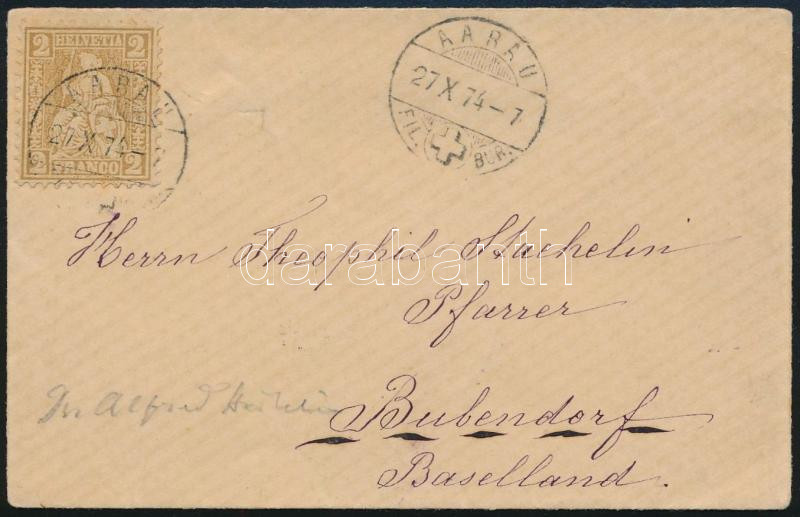 2 HELVETIA 2
FRANCO 2
AARAU
27 X 74-
AARAU
27 X 74-7
FIL. BUR.
Herrn Theophil Staehelin
darabanth
Pfarrer
Alfred
Bubendorf
Baselland.